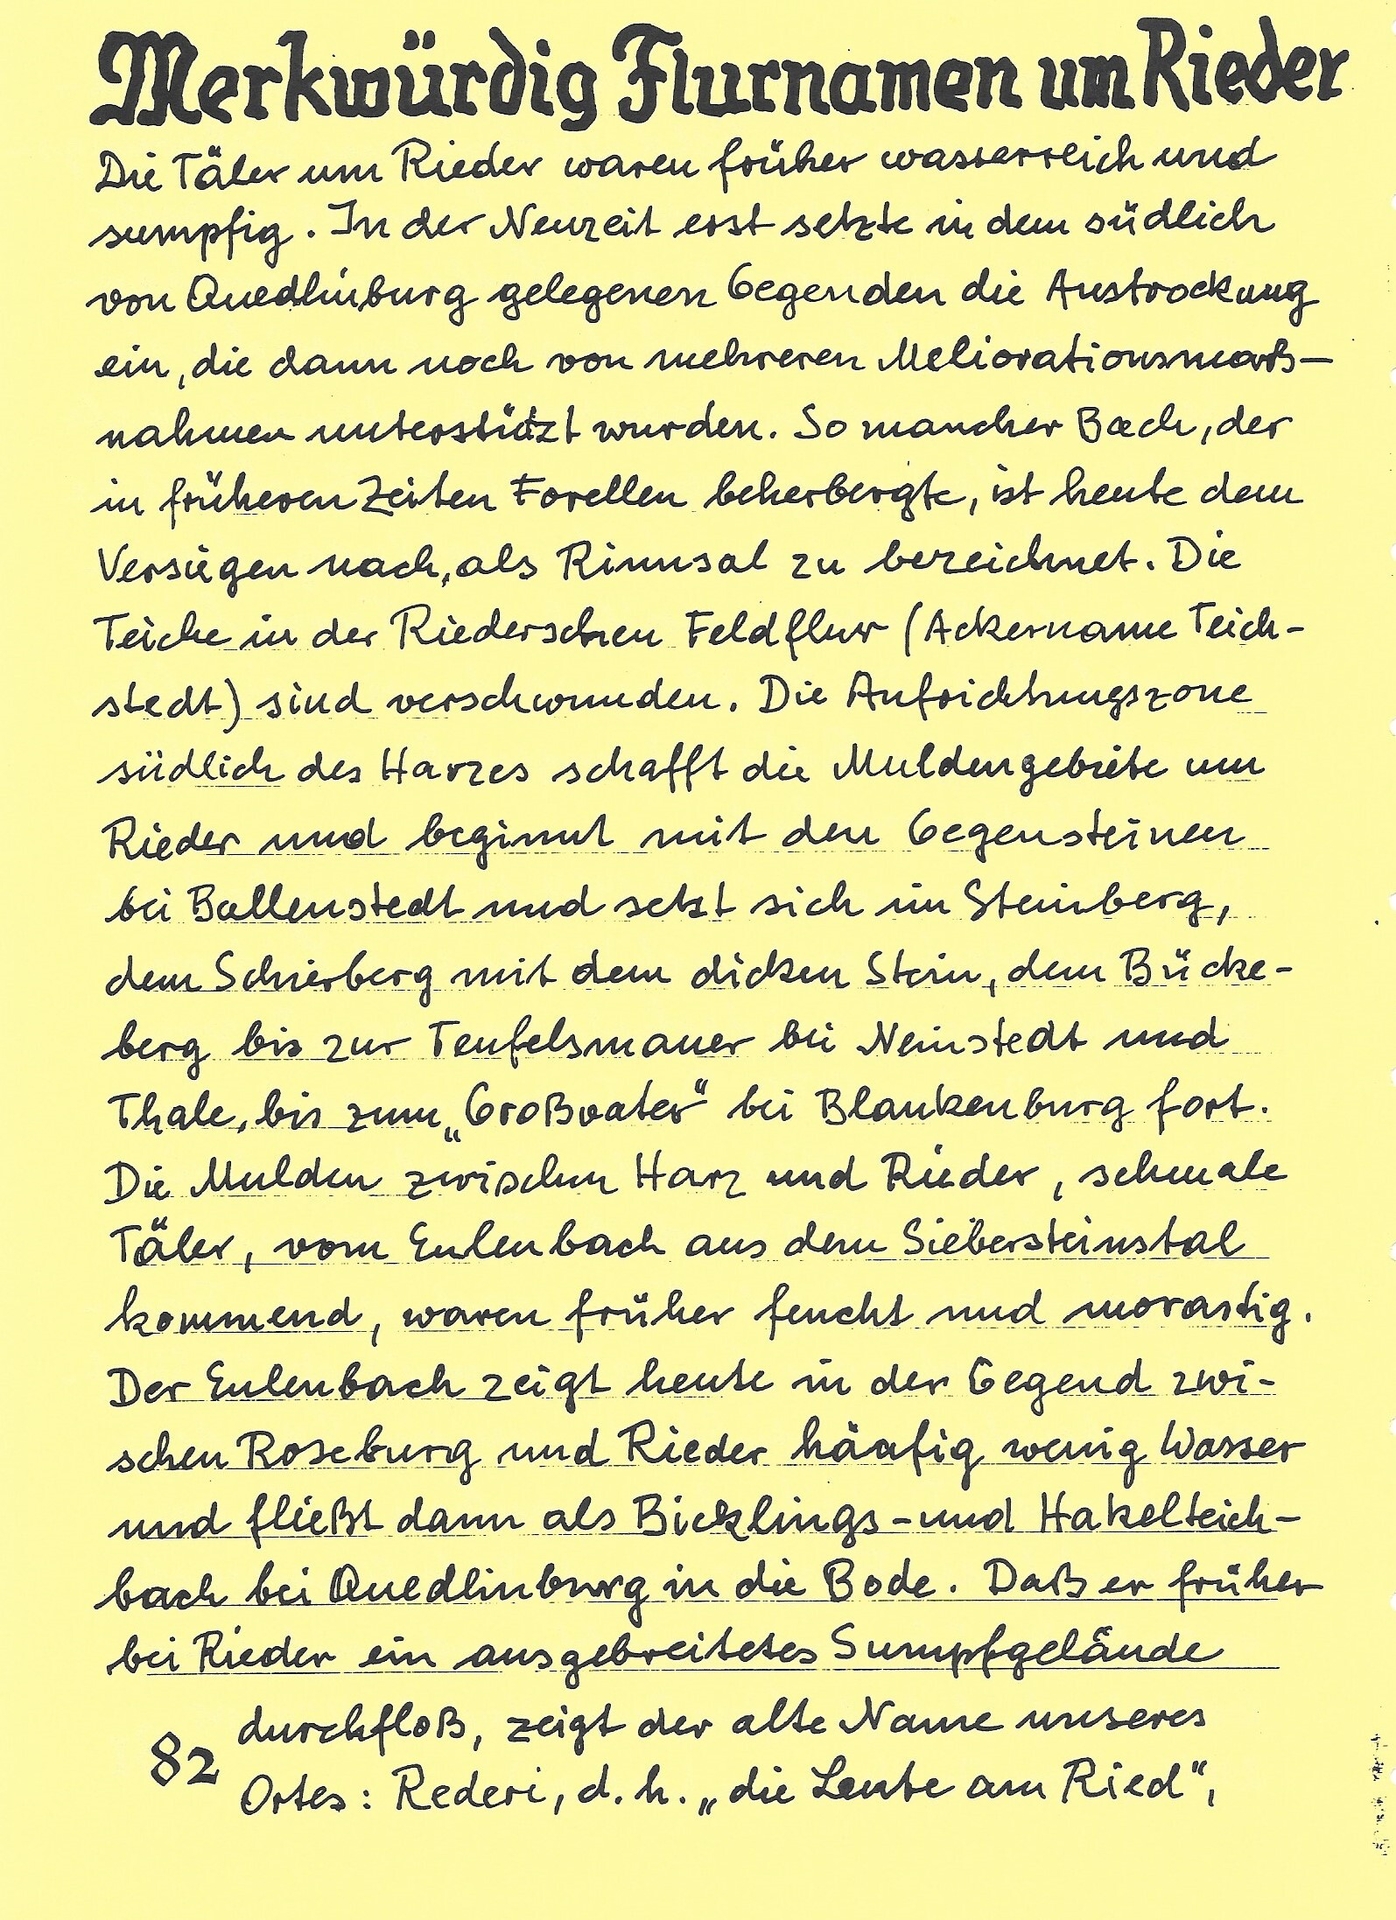 Merkwürdig Flurnamen um Rieder
Die Täler um Rieder waren früher wasserreich und
sumpfig. In der Neuzeit erst setzte in dem südlich
von Quedlinburg gelegenen Gegenden die Austrockung
ein, die dann noch von mehreren Meliorationsmaß-
nahmen unterstützt wurden. So mancher Bach, der
in früheren Zeiten Forellen beherbergte, ist heute dem
Versiegen nach, als Rinnsal zu bezeichnet. Die
Teiche in der Riederschen Feldflur (Ackername Teich-
stedt) sind verschwunden. Die Aufrichtungszone
südlich des Harzes schafft die Muldengebiete um
Rieder und beginnt mit den Gegensteinen
bei Ballenstedt und setzt sich im Steinberg,
dem Schierberg mit dem dicken Stein, dem Bücke-
berg bis zur Teufelsmauer bei Neinstedt und
Thale, bis zum „Großvater“ bei Blankenburg fort.
Die Mulden zwischen Harz und Rieder, schmale
Täler, vom Eulenbach aus dem Siebersteinstal
kommend, waren früher feucht und morastig.
Der Eulenbach zeigt heute in der Gegend zwi-
schen Roseburg und Rieder häufig wenig Wasser
und fließt dann als Bicklings- und Hakelteich-
bach bei Quedlinburg in die Bode. Daß er früher
bei Rieder ein ausgebreitetes Sumpfgelände
durchfloß, zeigt der alte Name unseres
82 Ortes: Rederi, d. h. „die Leute am Ried“,